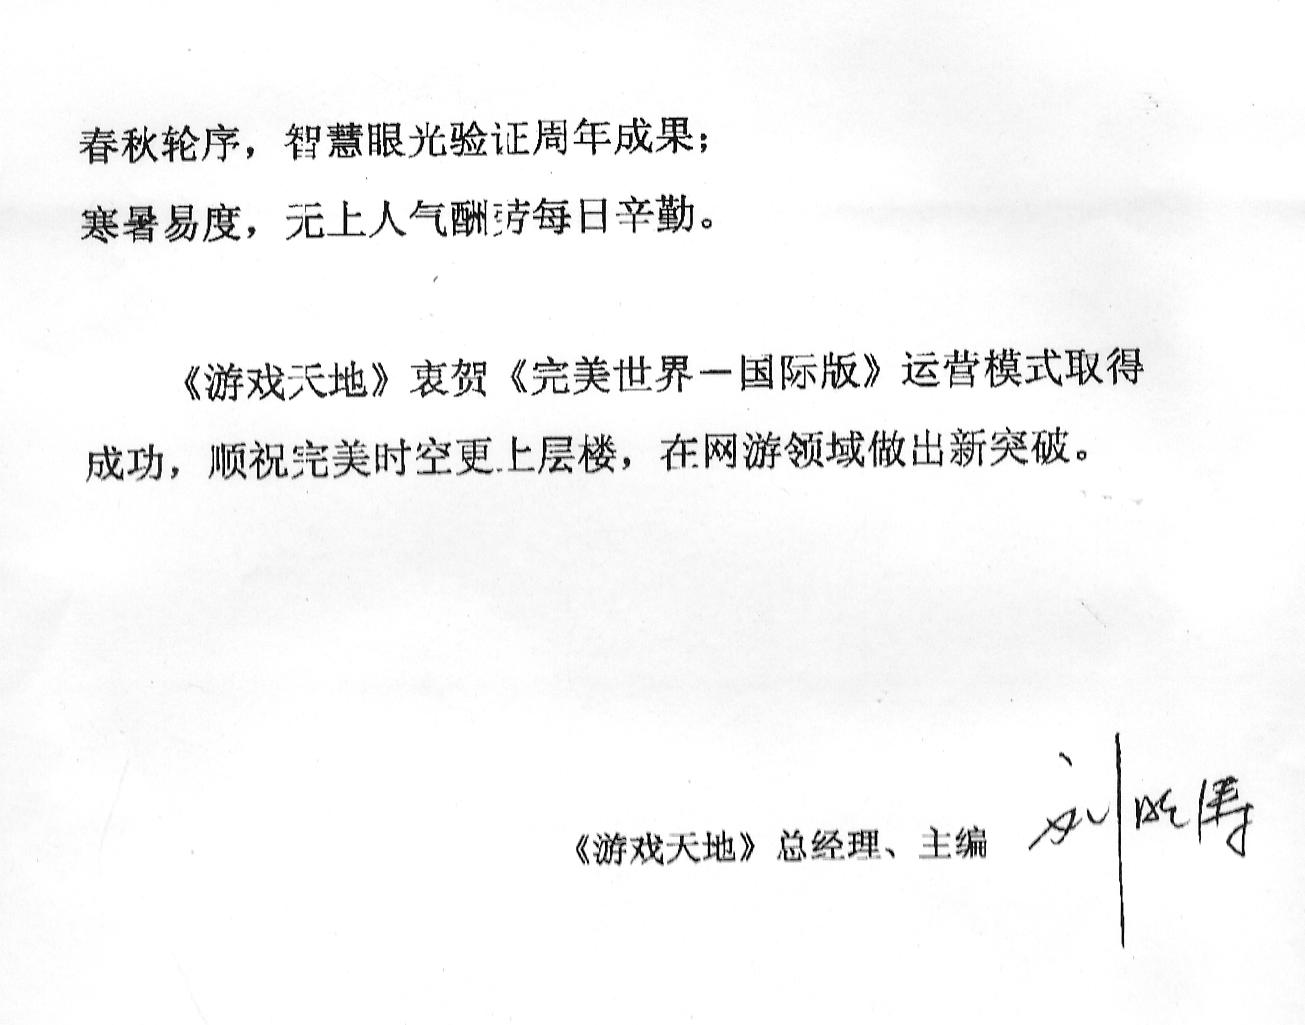 春秋轮序，智慧眼光验证周年成果；
寒暑易度，无上人气酬劳每日辛勤。
《游戏天地》衷贺《完美世界－国际版》运营模式取得
成功，顺祝完美时空更上层楼，在网游领域做出新突破。
《游戏天地》总经理、主编 刘晓涛